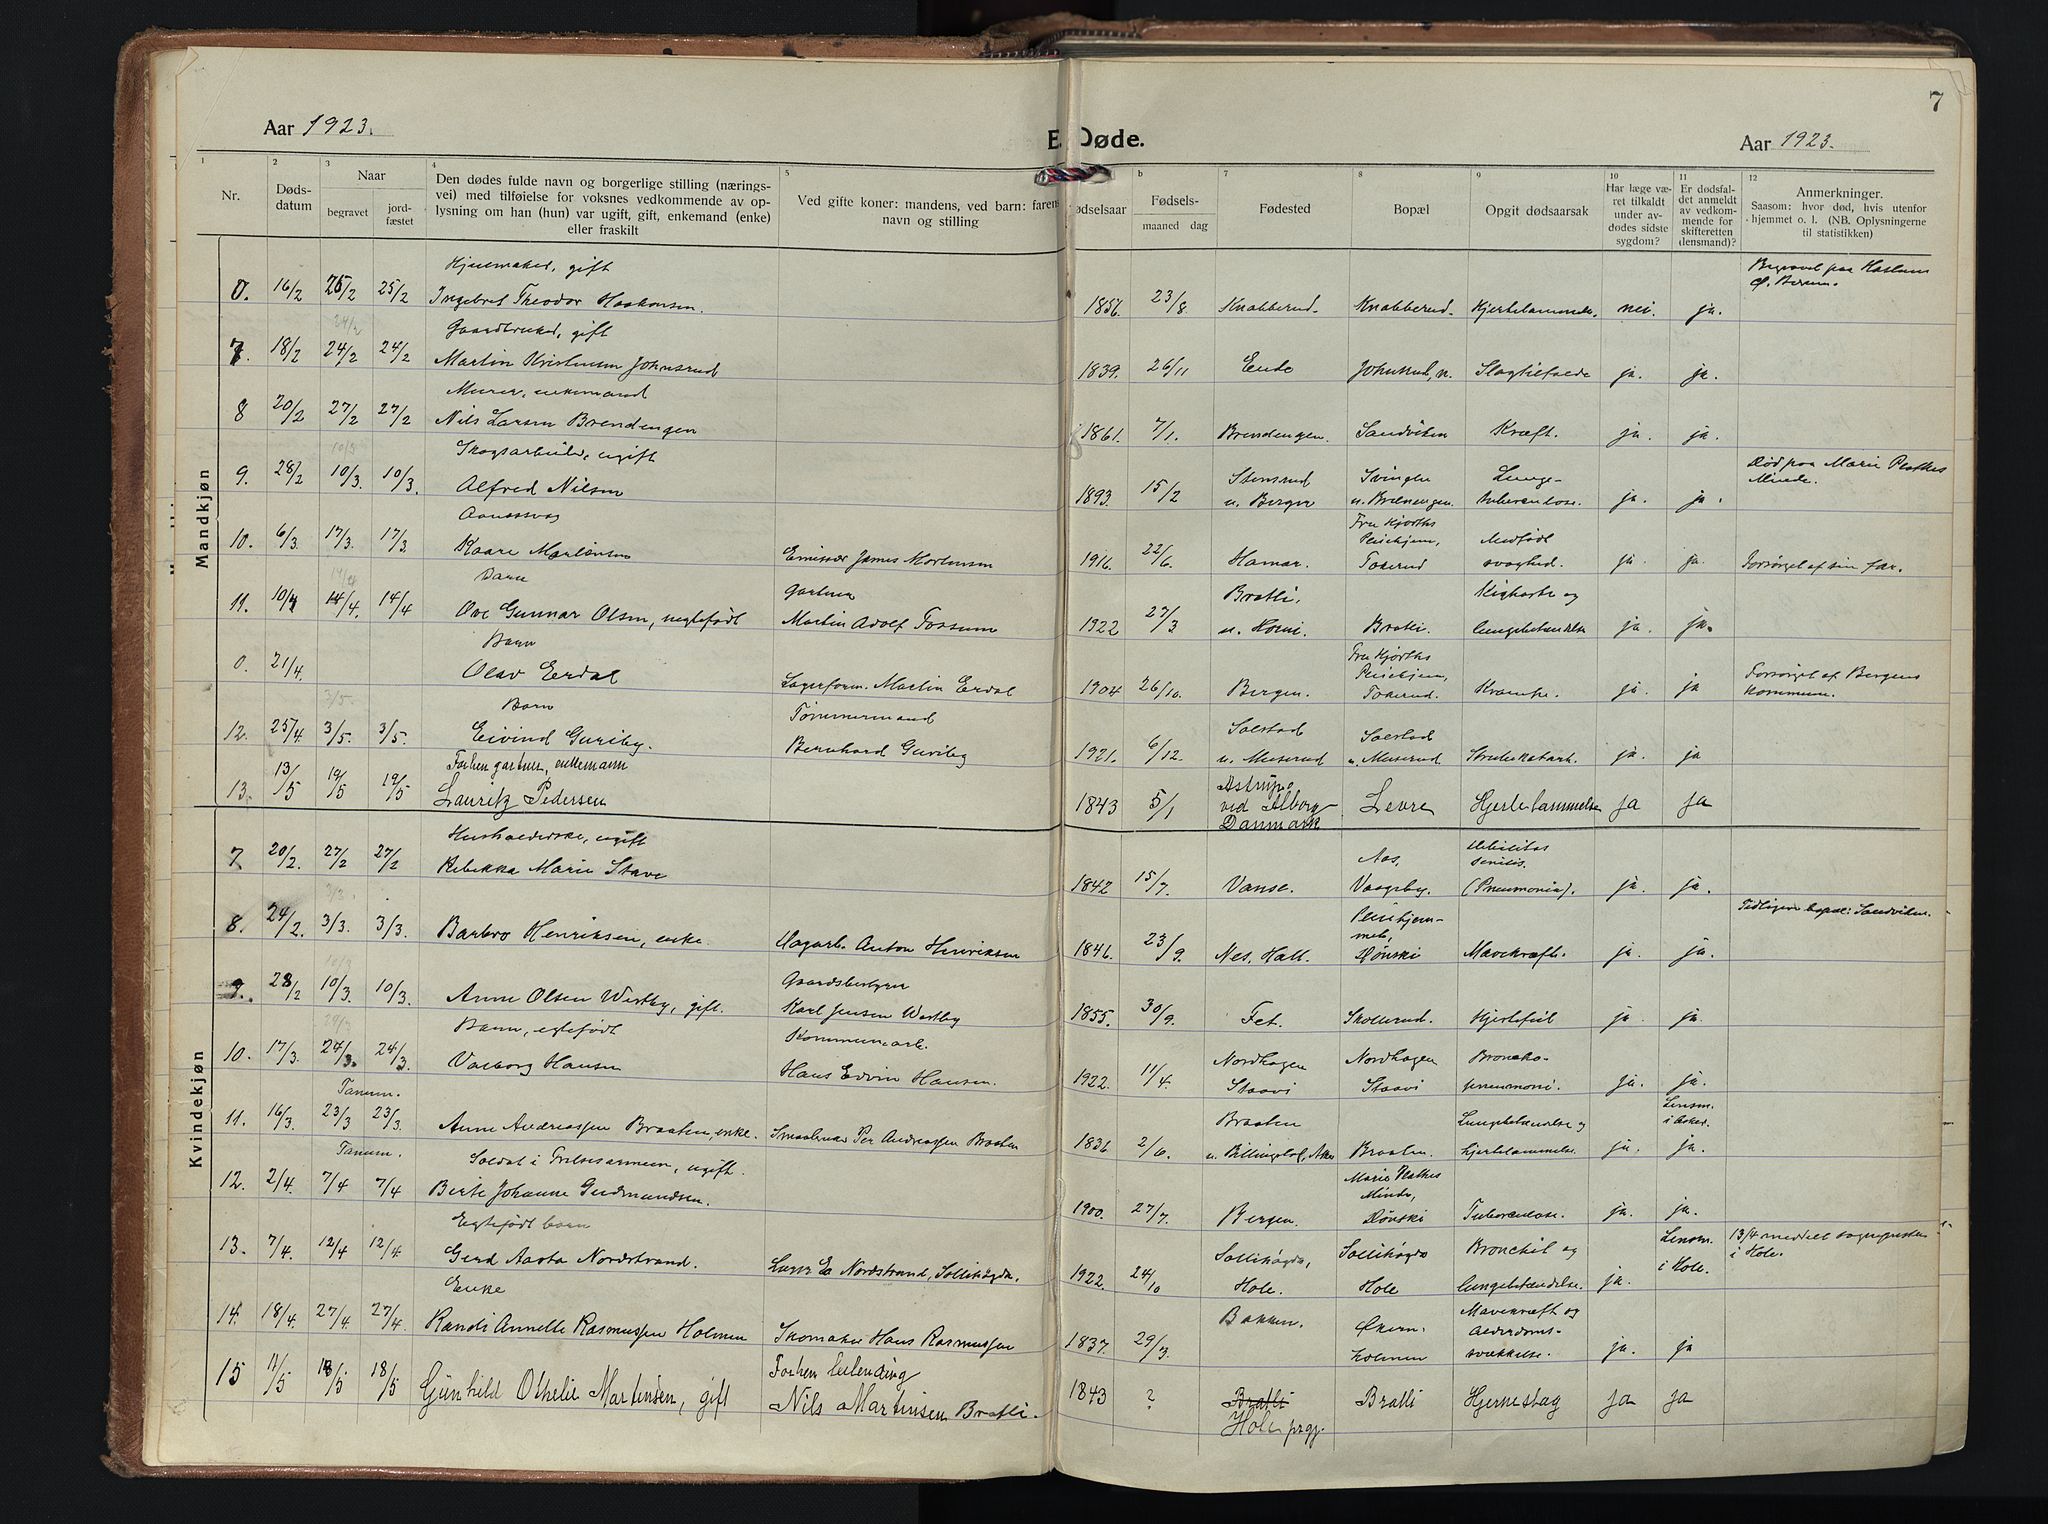 7
Aar 1923.
E. Døde.
Aar 1923.
1 2 3 4 5 b 7 8 9 10 11 12
Nr.
Døds-
datum
Naar
begravet
jord-
fæstet
Den dødes fulde navn og borgerlige stilling (nærings-
vei) med tilføielse for voksnes vedkommende av op-
lysning om han (hun) var ugift, gift, enkemand (enke)
eller fraskilt
Ved gifte koner: mandens, ved barn: farens
navn og stilling
Fødsels-
maaned dag
Fødested
Bopæl
Opgit dødsaarsak
Har læge væ-
ret tilkaldt
under av-
dødes sidste
sygdom?
Er dødsfal-
det anmeldt
av vedkom-
mende for
skifteretten
(lensmand)?
Anmerkninger.
Saasom: hvor død, hvis utenfor
hjemmet o. l. (NB. Oplysningerne
til statistikken)
Mandkjøn
Hjulmaker, gift
0. 16/2 25/2 25/2 Ingebret Theodor Haakonsen. 1856. 23/8. Knabberud. Knabberud. Hjertelammelse. nei. ja.
Begravet paa Haslum
Gaardbruker, gift
7. 18/2 24/2 24/2 Martin Kristensen Johnsrud 1839. 26/11 Eude Johnsrud, n. Slagtilfælde ja. ja.
Murer, enkemand
8 20/2 27/2 27/2 Nils Larsen Brendengen 1861. 7/1. Brendengen. Sandviken Kræft. ja. ja.
Skogsarbeider, ugift
9. 28/2 10/3. 10/3. Alfred Nilsen 1893. 15/2 Stensrud u. Berger Svingen u. Brænengen. Lunge-tuberkulose. ja. ja.
Død paa Marie Plathes
Minde.
Aandssvag
10. 6/3. 17/3. 17/3 Kaare Martinsen Emissær James Mortensen 1916. 22/6. Hamar. Fru Hjorths Pleiehjem, Tokerud Medfødt svaghed. ja. ja. Forsørget af sin far.
Barn
11. 10/4 14/4. 14/4 Ove Gunnar Olsen, uegtefødt Gartner Martin Adolf Fossum 1922 27/3 Bratli, u. Horni Bratli. Kighoste og lungebetændelse ja. ja.
Barn
0. 21/4. Olav Erdal Lagerform. Martin Erdal 1904 26/10. Bergen. Fru Hjorths Pleiehjem, Tokerud. Krampe. ja. ja
Forsørget af Bergens
Kommune.
Barn
12. 25/4. 3/5. 3/5. Eivind Guriby. Tømmermand Bernhard Guriby 1921. 6/12. Solstad u. Muserud Solstad u. Muserud Strubekatarh. ja. ja
Forhen gartner, enkemann
13. 13/5 19/5 19/5 Lauritz Pedersen 1843 5/1 Astrup, ved Alborg Danmark Levre Hjertelammelse ja ja
Kvindekjøn
Husholderske, ugift
7. 20/2. 27/2 27/2 Rebekka Marie Stave 1842 15/7. Vanse. Aas, Vaageby. Debilitas senilis. (Pneumonia). ja. ja.
8. 24/2. 3/3. 3/3. Barbro Henriksen, enke. Dagarb. Anton Henriksen 1846. 23/9. Nes, Hall. Pleiehjemmet, Dønski Mavekræft. ja. ja.
Tidligere bopæl: Sandviken.
9. 28/2 10/3. 10/3. Anne Olsen Westby, gift. Gaardsbestyrer Karl Jensen Westby 1855. 30/9. Fet. Skollerud. Hjertefeil ja. ja.
Barn, egtefødt
10. 17/3. 24/3. 24/3. Valborg Hansen Kommunearb. Hans Edvin Hansen. 1922. 11/4. Nordhagen Staavi Nordhagen Staavi Broncko-pneumoni. ja. ja.
Tanum.
11. 16/3. 23/3 23/3. Anne Andreassen Braaten, enke. Smaabruker Per Andreassen Braaten 1836 2/6. Braaten u. Billingstad, Asker Braaten. Lungebetændelse og hjertelammelse. ja. Lensm. i Asker. ja.
Tanum.
Soldat i Frelsesarmeen, ugift.
12. 2/4. 7/4 7/4 Berte Johanne Gudmundsen. 1900. 27/7. Bergen. Marie Plathes Minde, Dønski Tuberculose. ja. ja.
Egtefødt barn
13. 7/4. 12/4 12/4 Gerd Aasta Nordstrand. Nordstrand, Sollihøgda. 1922. 24/10 Sollihøgda, Hole. Sollihøgda Hole Bronchit og lungebetændelse. ja. Lensm. i Hole.
13/4 meddelt sogneprest
i Hole.
Enke
14. 18/4. 27/4. 27/4. Randi Annette Rasmussen Holmen Skomaker Hans Rasmussen 1837. 29/3. Bakken. Økern-holmen Mavekræft og Alderdoms-svækkelse. ja. ja
15 11/5 18/5 18/5 Gunhild Othelie Martinsen, gift Forhen leilending Nils Martinsen Bratli. 1843 ? Bratli Hole prgj. Bratli Hjerneslag ja ja